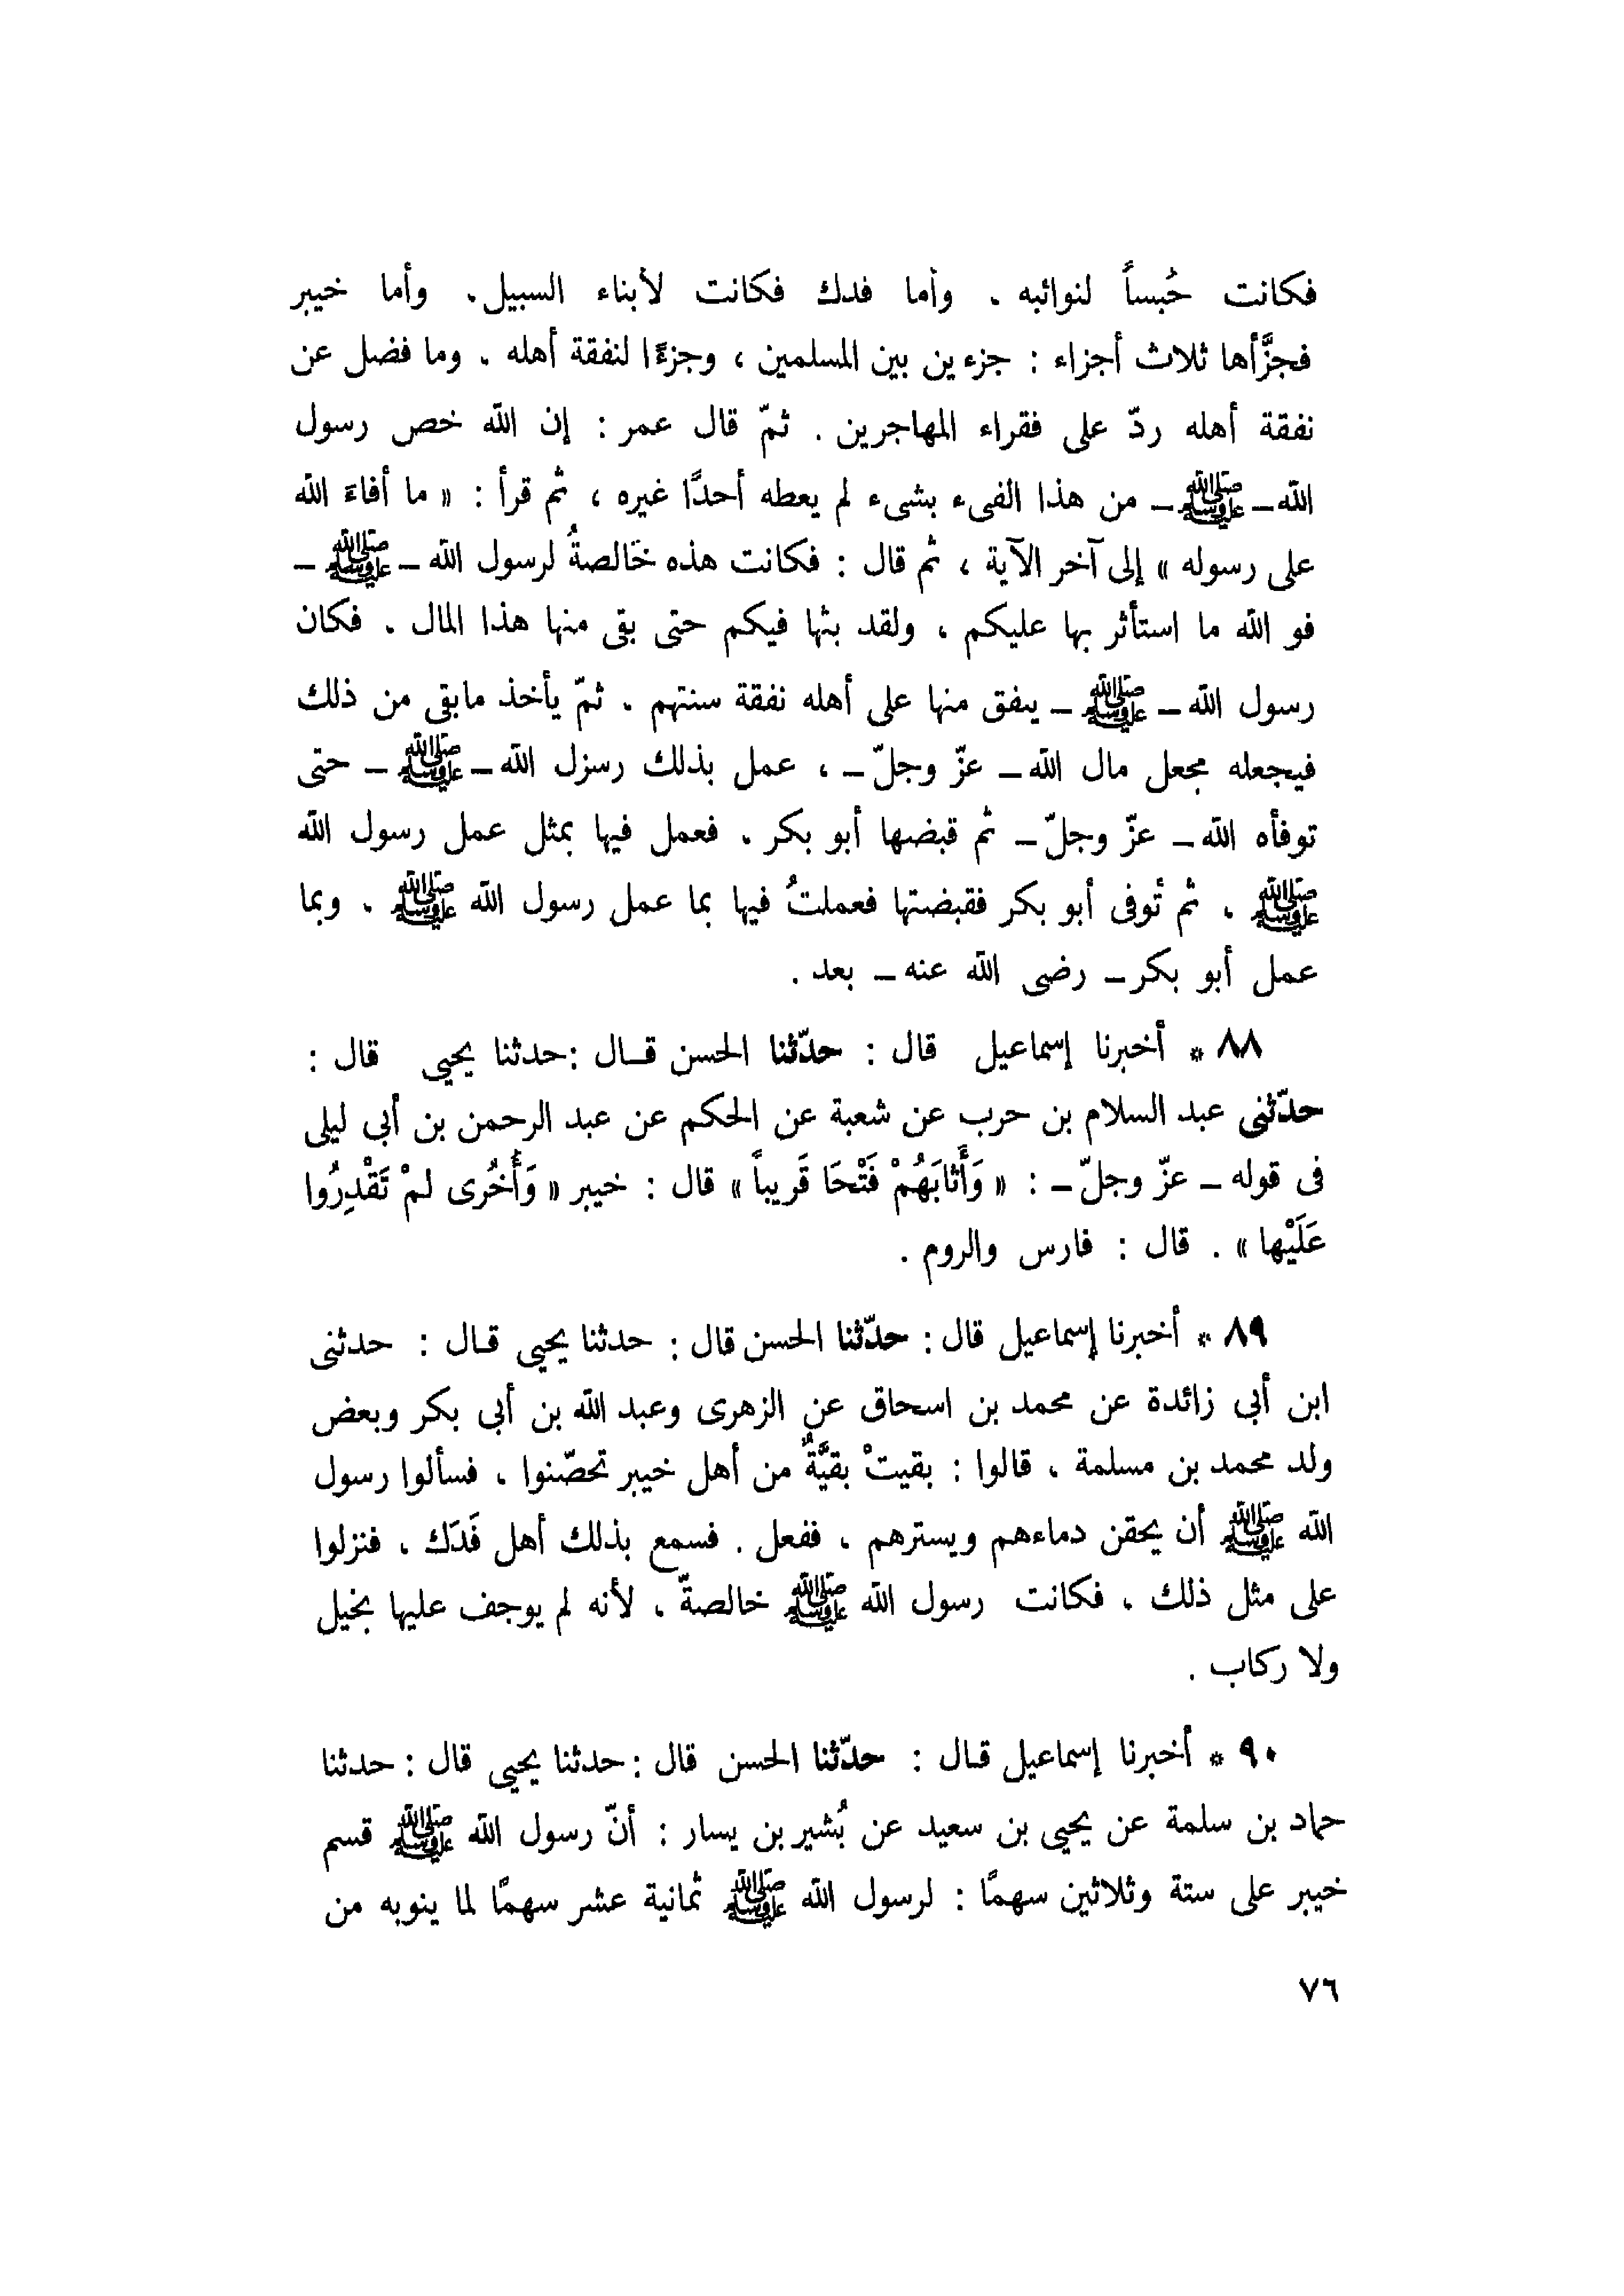 فكانت حُبساً لنوائبه . وأما فدك فكانت لأبناء السبيل. وأما خيبر
فجزَّأها ثلاث أجزاء : جزءين بين المسلمين ، وجزءًا لنفقة أهله . وما فضل عن
نفقة أهله ردّ على فقراء المهاجرين . ثمّ قال عمر : إن الله خص رسول
الله – ﷺ – من هذا الفىء بشىء لم يعطه أحدًا غيره ، ثم قرأ : « ما أفاءَ الله
على رسوله » إلى آخر الآية ، ثم قال : فكانت هذه خَالصةُ لرسول الله – ﷺ –
فو الله ما استأثر بها عليكم ، ولقد بثها فيكم حتى بقى منها هذا المال . فكان
رسول الله – ﷺ – ينفق منها على أهله نفقة سنتهم . ثمّ يأخذ مابقى من ذلك
فيجعله مجعل مال الله – عزّ وجلّ – ، عمل بذلك رسزل الله – ﷺ – حتى
توفأه الله – عزّ وجلّ – ثم قبضها أبو بكر . فعمل فيها بمثل عمل رسول الله
ﷺ . ثم تُوفى أبو بكر فقبضتها فعملتُ فيها بما عمل رسول الله ﷺ . وبما
عمل أبو بكر – رضى الله عنه – بعد .
٨٨ * أخبرنا إسماعيل قال : حدّثنا الحسن قال : حدثنا يحيى قال :
حدّثنى عبد السلام بن حرب عن شعبة عن الحكم عن عبد الرحمن بن أبى ليلى
فى قوله – عزّ وجلّ – : « وَأَثابَهُمْ فَتْحَا قَريباً » قال : خيبر « وَأُخُرى لمْ تَقْدِرُوا
عَلَيْها » . قال : فارس والروم .
٨٩ * أخبرنا إسماعيل قال : حدّثنا الحسن قال : حدثنا يحيى قال : حدثنى
ابن أبى زائدة عن محمد بن اسحاق عن الزهرى وعبد الله بن أبى بكر وبعض
ولد محمد بن مسلمة ، قالوا : بقيتْ بقيَّةٌ من أهل خيبر تحصّنوا ، فسألوا رسول
الله ﷺ أن يحقن دماءهم ويسترهم ، ففعل . فسمع بذلك أهل فَدَك ، فنزلوا
على مثل ذلك . فكانت رسول الله ﷺ خالصةّ ، لأنه لم يوجف عليها بخيل
ولا ركاب .
٩٠ * أخبرنا إسماعيل قال : حدّثنا الحسن قال : حدثنا يحيى قال : حدثنا
حماد بن سلمة عن يحيى بن سعيد عن بُشير بن يسار : أنّ رسول الله ﷺ قسم
خيبر على ستة وثلاثين سهمًا : لرسول الله ﷺ ثمانية عشر سهمًا لما ينوبه من
٧٦